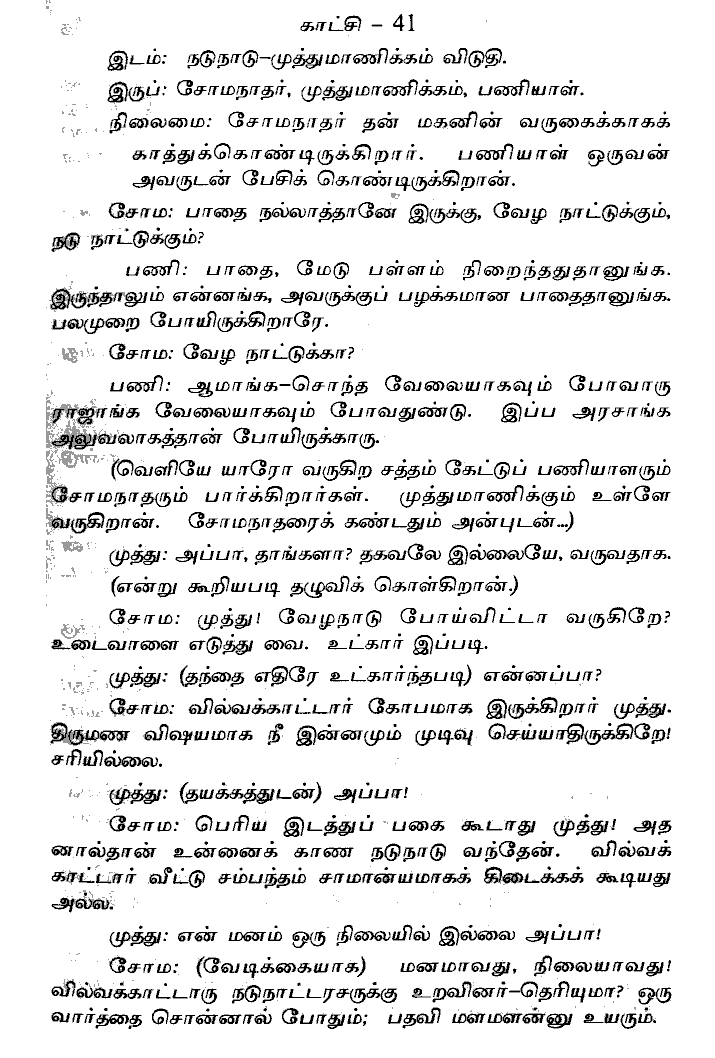 காட்சி – 41
இடம்: நடுநாடு–முத்துமாணிக்கம் விடுதி.
இருப்: சோமநாதர், முத்துமாணிக்கம், பணியாள்.
நிலைமை: சோமநாதர் தன் மகனின் வருகைக்காகக்
காத்துக்கொண்டிருக்கிறார். பணியாள் ஒருவன்
அவருடன் பேசிக் கொண்டிருக்கிறான்.
சோம: பாதை நல்லாத்தானே இருக்கு, வேழ நாட்டுக்கும்,
நடு நாட்டுக்கும்?
பணி: பாதை, மேடு பள்ளம் நிறைந்ததுதானுங்க.
இருந்தாலும் என்னங்க, அவருக்குப் பழக்கமான பாதைதானுங்க.
பலமுறை போயிருக்கிறாரே.
சோம: வேழ நாட்டுக்கா?
பணி: ஆமாங்க–சொந்த வேலையாகவும் போவாரு
ராஜாங்க வேலையாகவும் போவதுண்டு. இப்ப அரசாங்க
அலுவலாகத்தான் போயிருக்காரு.
(வெளியே யாரோ வருகிற சத்தம் கேட்டுப் பணியாளரும்
சோமநாதரும் பார்க்கிறார்கள். முத்துமாணிக்கும் உள்ளே
வருகிறான். சோமநாதரைக் கண்டதும் அன்புடன்...)
முத்து: அப்பா, தாங்களா? தகவலே இல்லையே, வருவதாக.
(என்று கூறியபடி தழுவிக் கொள்கிறான்.)
சோம: முத்து! வேழநாடு போய்விட்டா வருகிறே?
உடைவாளை எடுத்து வை. உட்கார் இப்படி.
முத்து: (தந்தை எதிரே உட்கார்ந்தபடி) என்னப்பா?
சோம: வில்வக்காட்டார் கோபமாக இருக்கிறார் முத்து.
திருமண விஷயமாக நீ இன்னமும் முடிவு செய்யாதிருக்கிறே!
சரியில்லை.
முத்து: (தயக்கத்துடன்) அப்பா!
சோம: பெரிய இடத்துப் பகை கூடாது முத்து! அத
னால்தான் உன்னைக் காண நடுநாடு வந்தேன். வில்வக்
காட்டார் வீட்டு சம்பந்தம் சாமான்யமாகக் கிடைக்கக் கூடியது
அல்ல.
முத்து: என் மனம் ஒரு நிலையில் இல்லை அப்பா!
சோம: (வேடிக்கையாக) மனமாவது, நிலையாவது!
வில்வக்காட்டாரு நடுநாட்டரசருக்கு உறவினர்–தெரியுமா? ஒரு
வார்த்தை சொன்னால் போதும்; பதவி மளமளன்னு உயரும்.